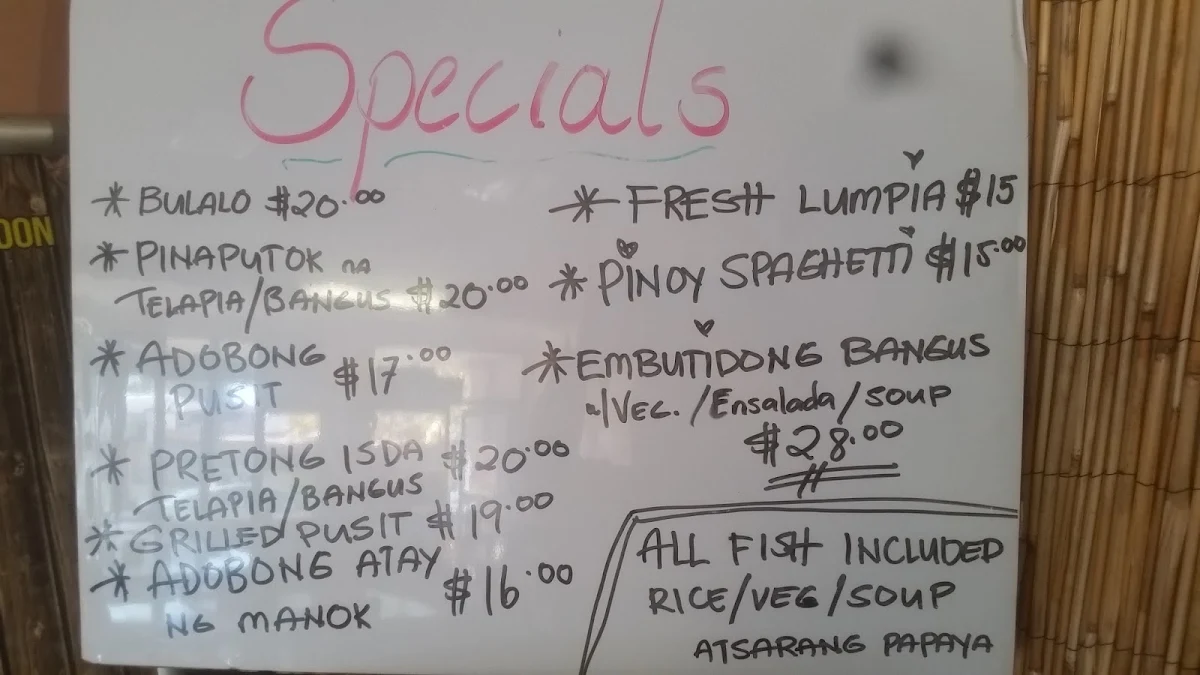 Specials
* BULALO $20.00
* PINAPUTOK NA
TELAPIA/BANGUS $20.00
* ADOBONG
PUSIT $17.00
* PRETONG ISDA $20.00
TELAPIA/BANGUS
* GRILLED PUSIT $19.00
* ADOBONG ATAY
NG MANOK $16.00
* FRESH LUMPIA $15
* PINOY SPAGHETTI $15.00
* EMBUTIDONG BANGUS
w/VEG./Ensalada/SOUP
$28.00
ALL FISH INCLUDED
RICE/VEG/SOUP
ATSARANG PAPAYA
OON